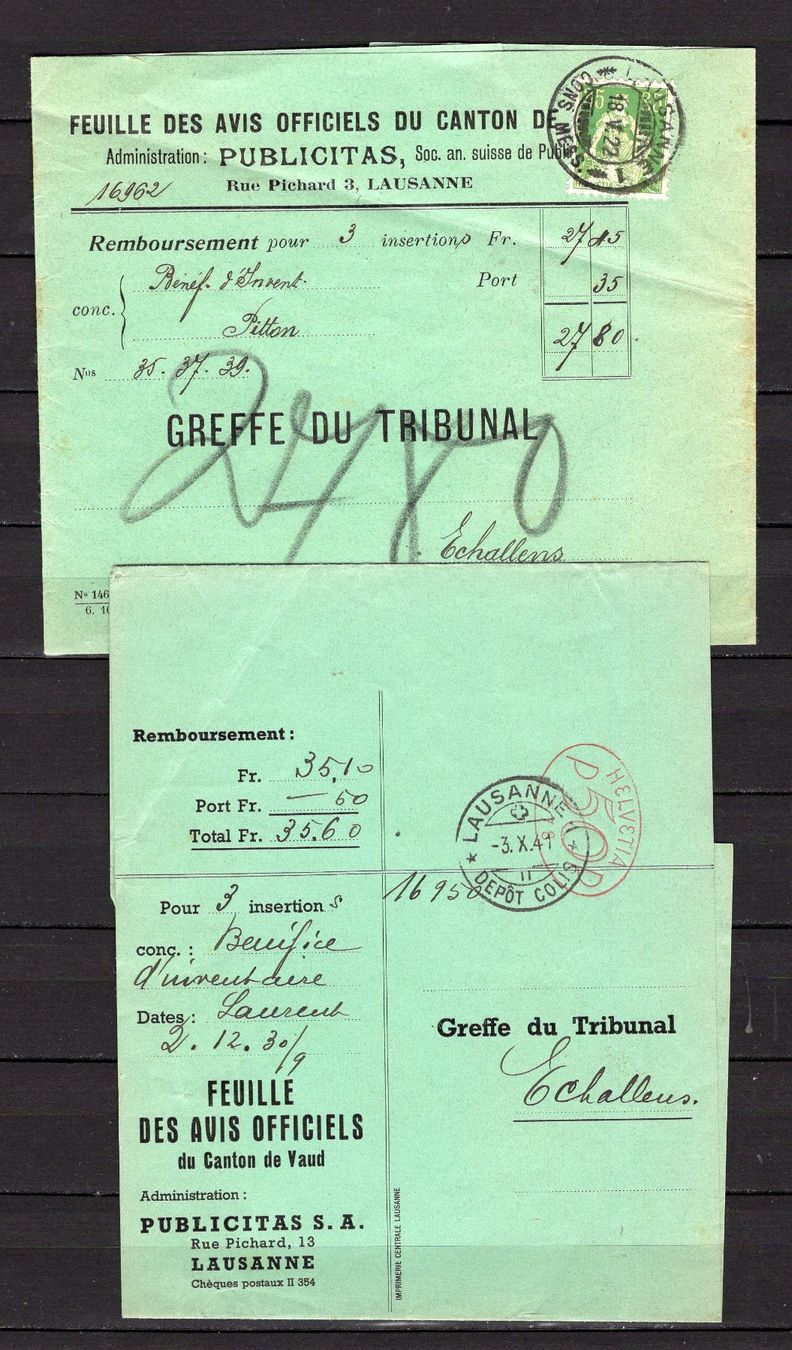 FEUILLE DES AVIS OFFICIELS DU CANTON DE
Administration: PUBLICITAS, Soc. an. suisse de Publi
16962 Rue Pichard 3, LAUSANNE
LAUSANNE 1
CONS. MESS.
18.V.22
35
Remboursement pour 3 insertions Fr. 27 45
conc. Bénéf. d'Invent. Port 35
Pitton 27 80
Nos 35. 37. 39.
2780
GREFFE DU TRIBUNAL
Echallens
No 146
6. 16
Remboursement:
Fr. 35,10
Port Fr. — 50
Total Fr. 35.60
LAUSANNE 1
-3.X.41
II
DEPÔT COLIS
HELVETIA
P50P
Pour 3 insertions 16950
conc.: Benifice
d'inventaire
Dates: Laurent
2. 12. 30/9
Greffe du Tribunal
Echallens.
FEUILLE
DES AVIS OFFICIELS
du Canton de Vaud
Administration:
PUBLICITAS S. A.
Rue Pichard, 13
LAUSANNE
Chèques postaux II 354
IMPRIMERIE CENTRALE LAUSANNE